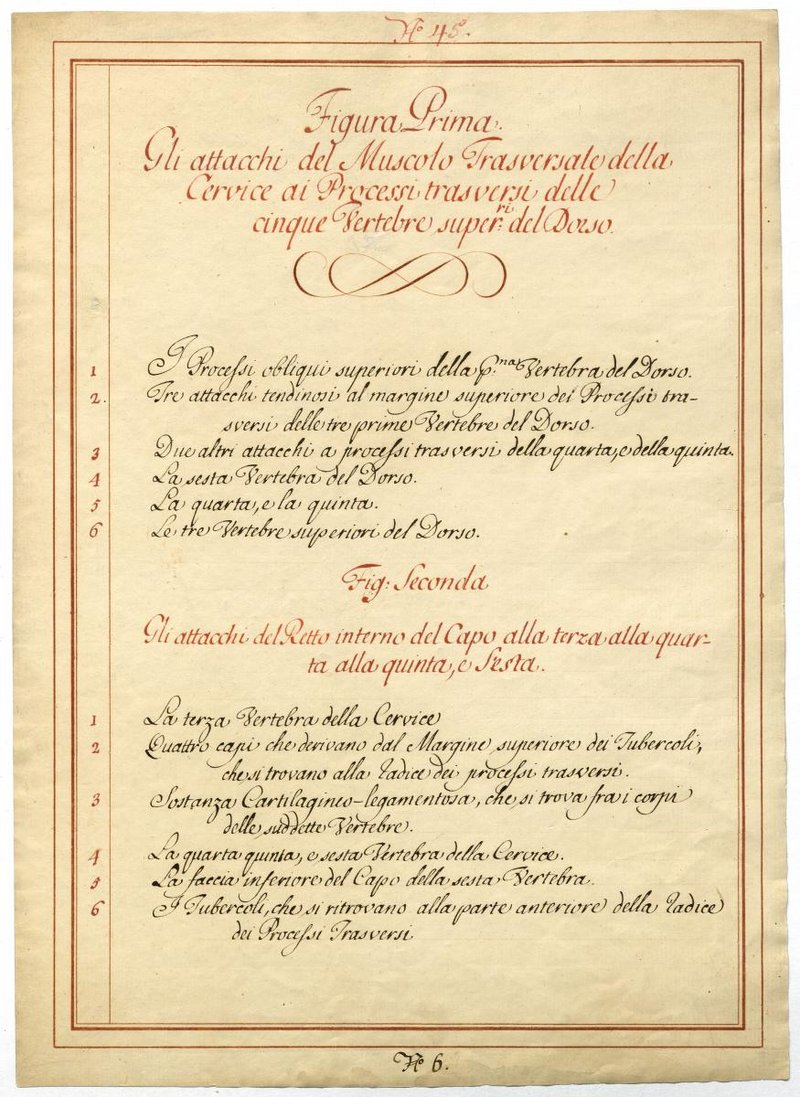 Nº 45.
Figura Prima.
Gli attacchi del Muscolo Trasversale della
Cervice ai Processi trasversi delle
cinque Vertebre super:ri del Dorso.
1 I Processi obliqui superiori della p:na Vertebra del Dorso.
2. Tre attacchi tendinosi al margine superiore dei Processi tra-
sversi delle tre prime Vertebre del Dorso.
3 Due altri attacchi a processi trasversi della quarta, e della quinta.
4 La sesta Vertebra del Dorso.
5 La quarta, e la quinta.
6 Le tre Vertebre superiori del Dorso.
Fig: Seconda
Gli attacchi del Retto interno del Capo alla terza alla quar-
ta alla quinta, e Sesta.
1 La terza Vertebra della Cervice
2 Quattro capi che derivano dal Margine superiore dei Tubercoli,
che si trovano alla radice dei processi trasversi.
3 Sostanza Cartilaginio-legamentosa, che si trova fra i corpi
delle suddette Vertebre.
4 La quarta quinta, e sesta Vertebra della Cervice.
5 La faccia inferiore del Capo della sesta Vertebra.
6 I Tubercoli, che si ritrovano alla parte anteriore della radice
dei Processi Trasversi
Nº 6.